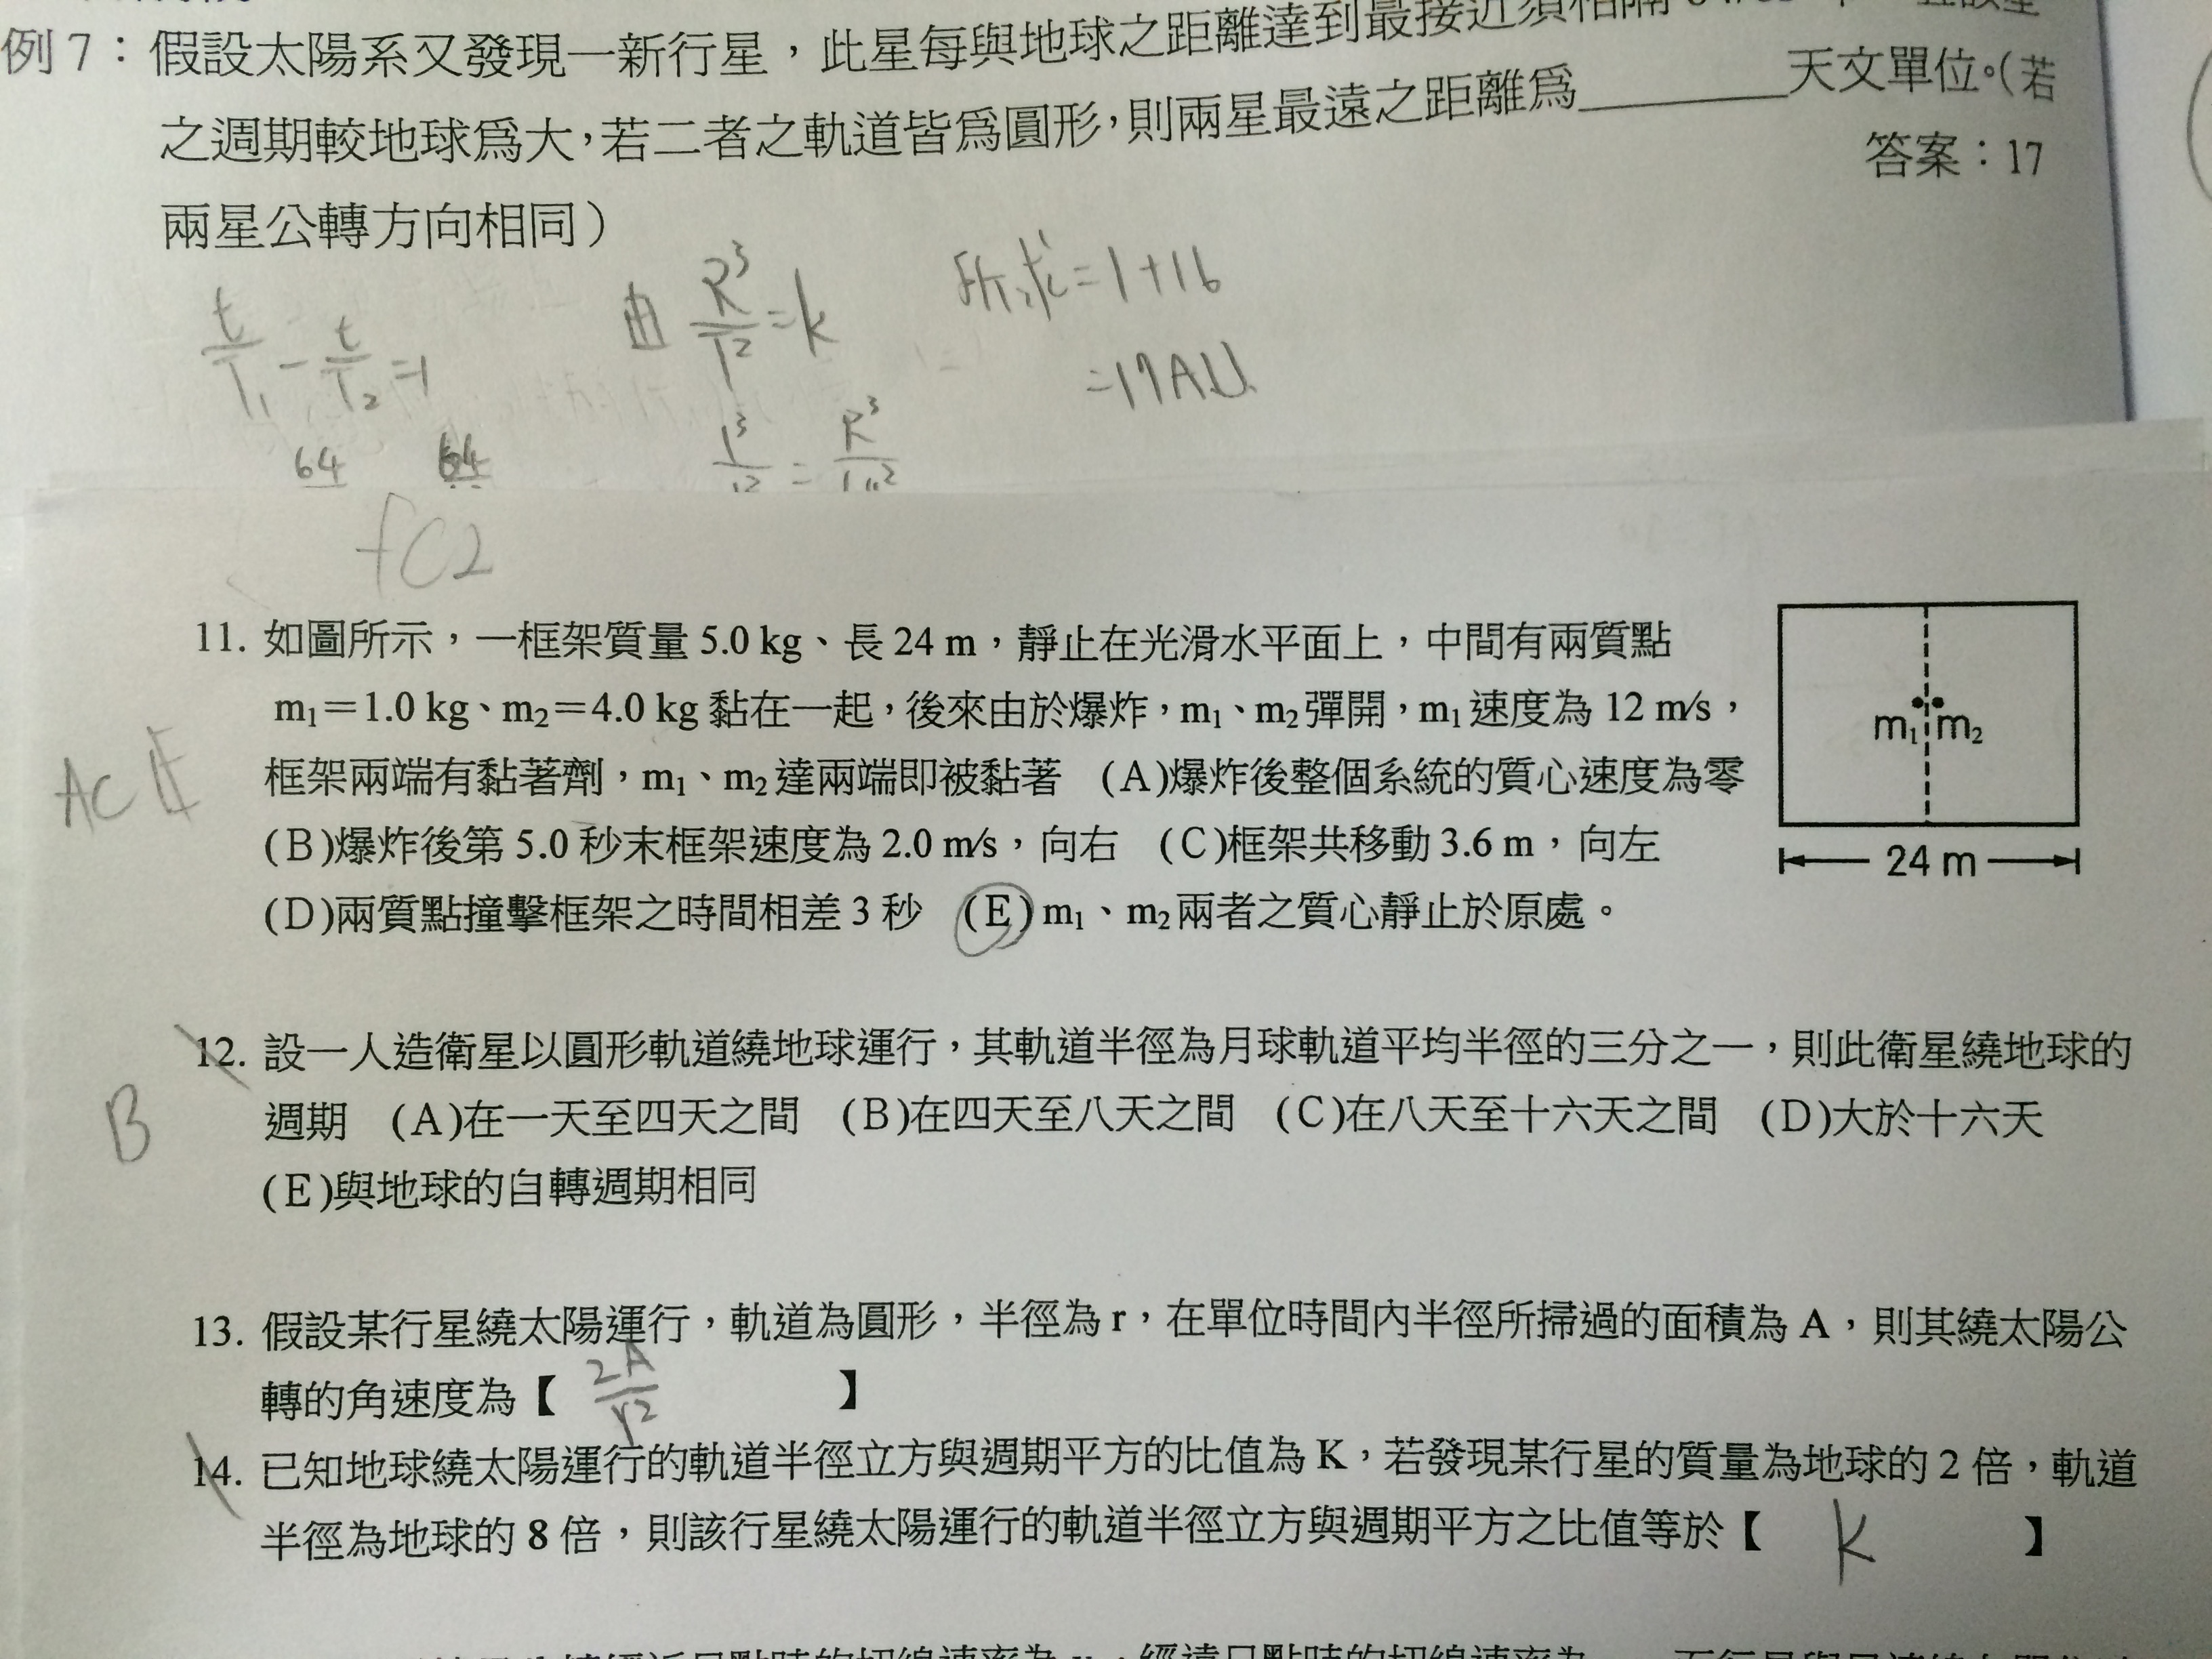 例7：假設太陽系又發現一新行星，此星每與地球之距離達到最接近須相隔
之週期較地球爲大，若二者之軌道皆爲圓形，則兩星最遠之距離爲________天文單位。（若
兩星公轉方向相同） 答案：17
t/T₁ - t/T₂ = 1
由 R³/T² = k
所求=1+16
=17AU.
64 64
1³/1² = R³/
fC2
11. 如圖所示，一框架質量 5.0 kg、長 24 m，靜止在光滑水平面上，中間有兩質點
m₁＝1.0 kg、m₂＝4.0 kg 黏在一起，後來由於爆炸，m₁、m₂彈開，m₁速度為 12 m/s，
框架兩端有黏著劑，m₁、m₂達兩端即被黏著 (A)爆炸後整個系統的質心速度為零
(B)爆炸後第 5.0 秒末框架速度為 2.0 m/s，向右 (C)框架共移動 3.6 m，向左
(D)兩質點撞擊框架之時間相差 3 秒 (E) m₁、m₂兩者之質心靜止於原處。
m₁ m₂
24 m
12. 設一人造衛星以圓形軌道繞地球運行，其軌道半徑為月球軌道平均半徑的三分之一，則此衛星繞地球的
B
週期 (A)在一天至四天之間 (B)在四天至八天之間 (C)在八天至十六天之間 (D)大於十六天
(E)與地球的自轉週期相同
13. 假設某行星繞太陽運行，軌道為圓形，半徑為 r，在單位時間內半徑所掃過的面積為 A，則其繞太陽公
轉的角速度為【 2A/r² 】
14. 已知地球繞太陽運行的軌道半徑立方與週期平方的比值為 K，若發現某行星的質量為地球的 2 倍，軌道
半徑為地球的 8 倍，則該行星繞太陽運行的軌道半徑立方與週期平方之比值等於【 K 】